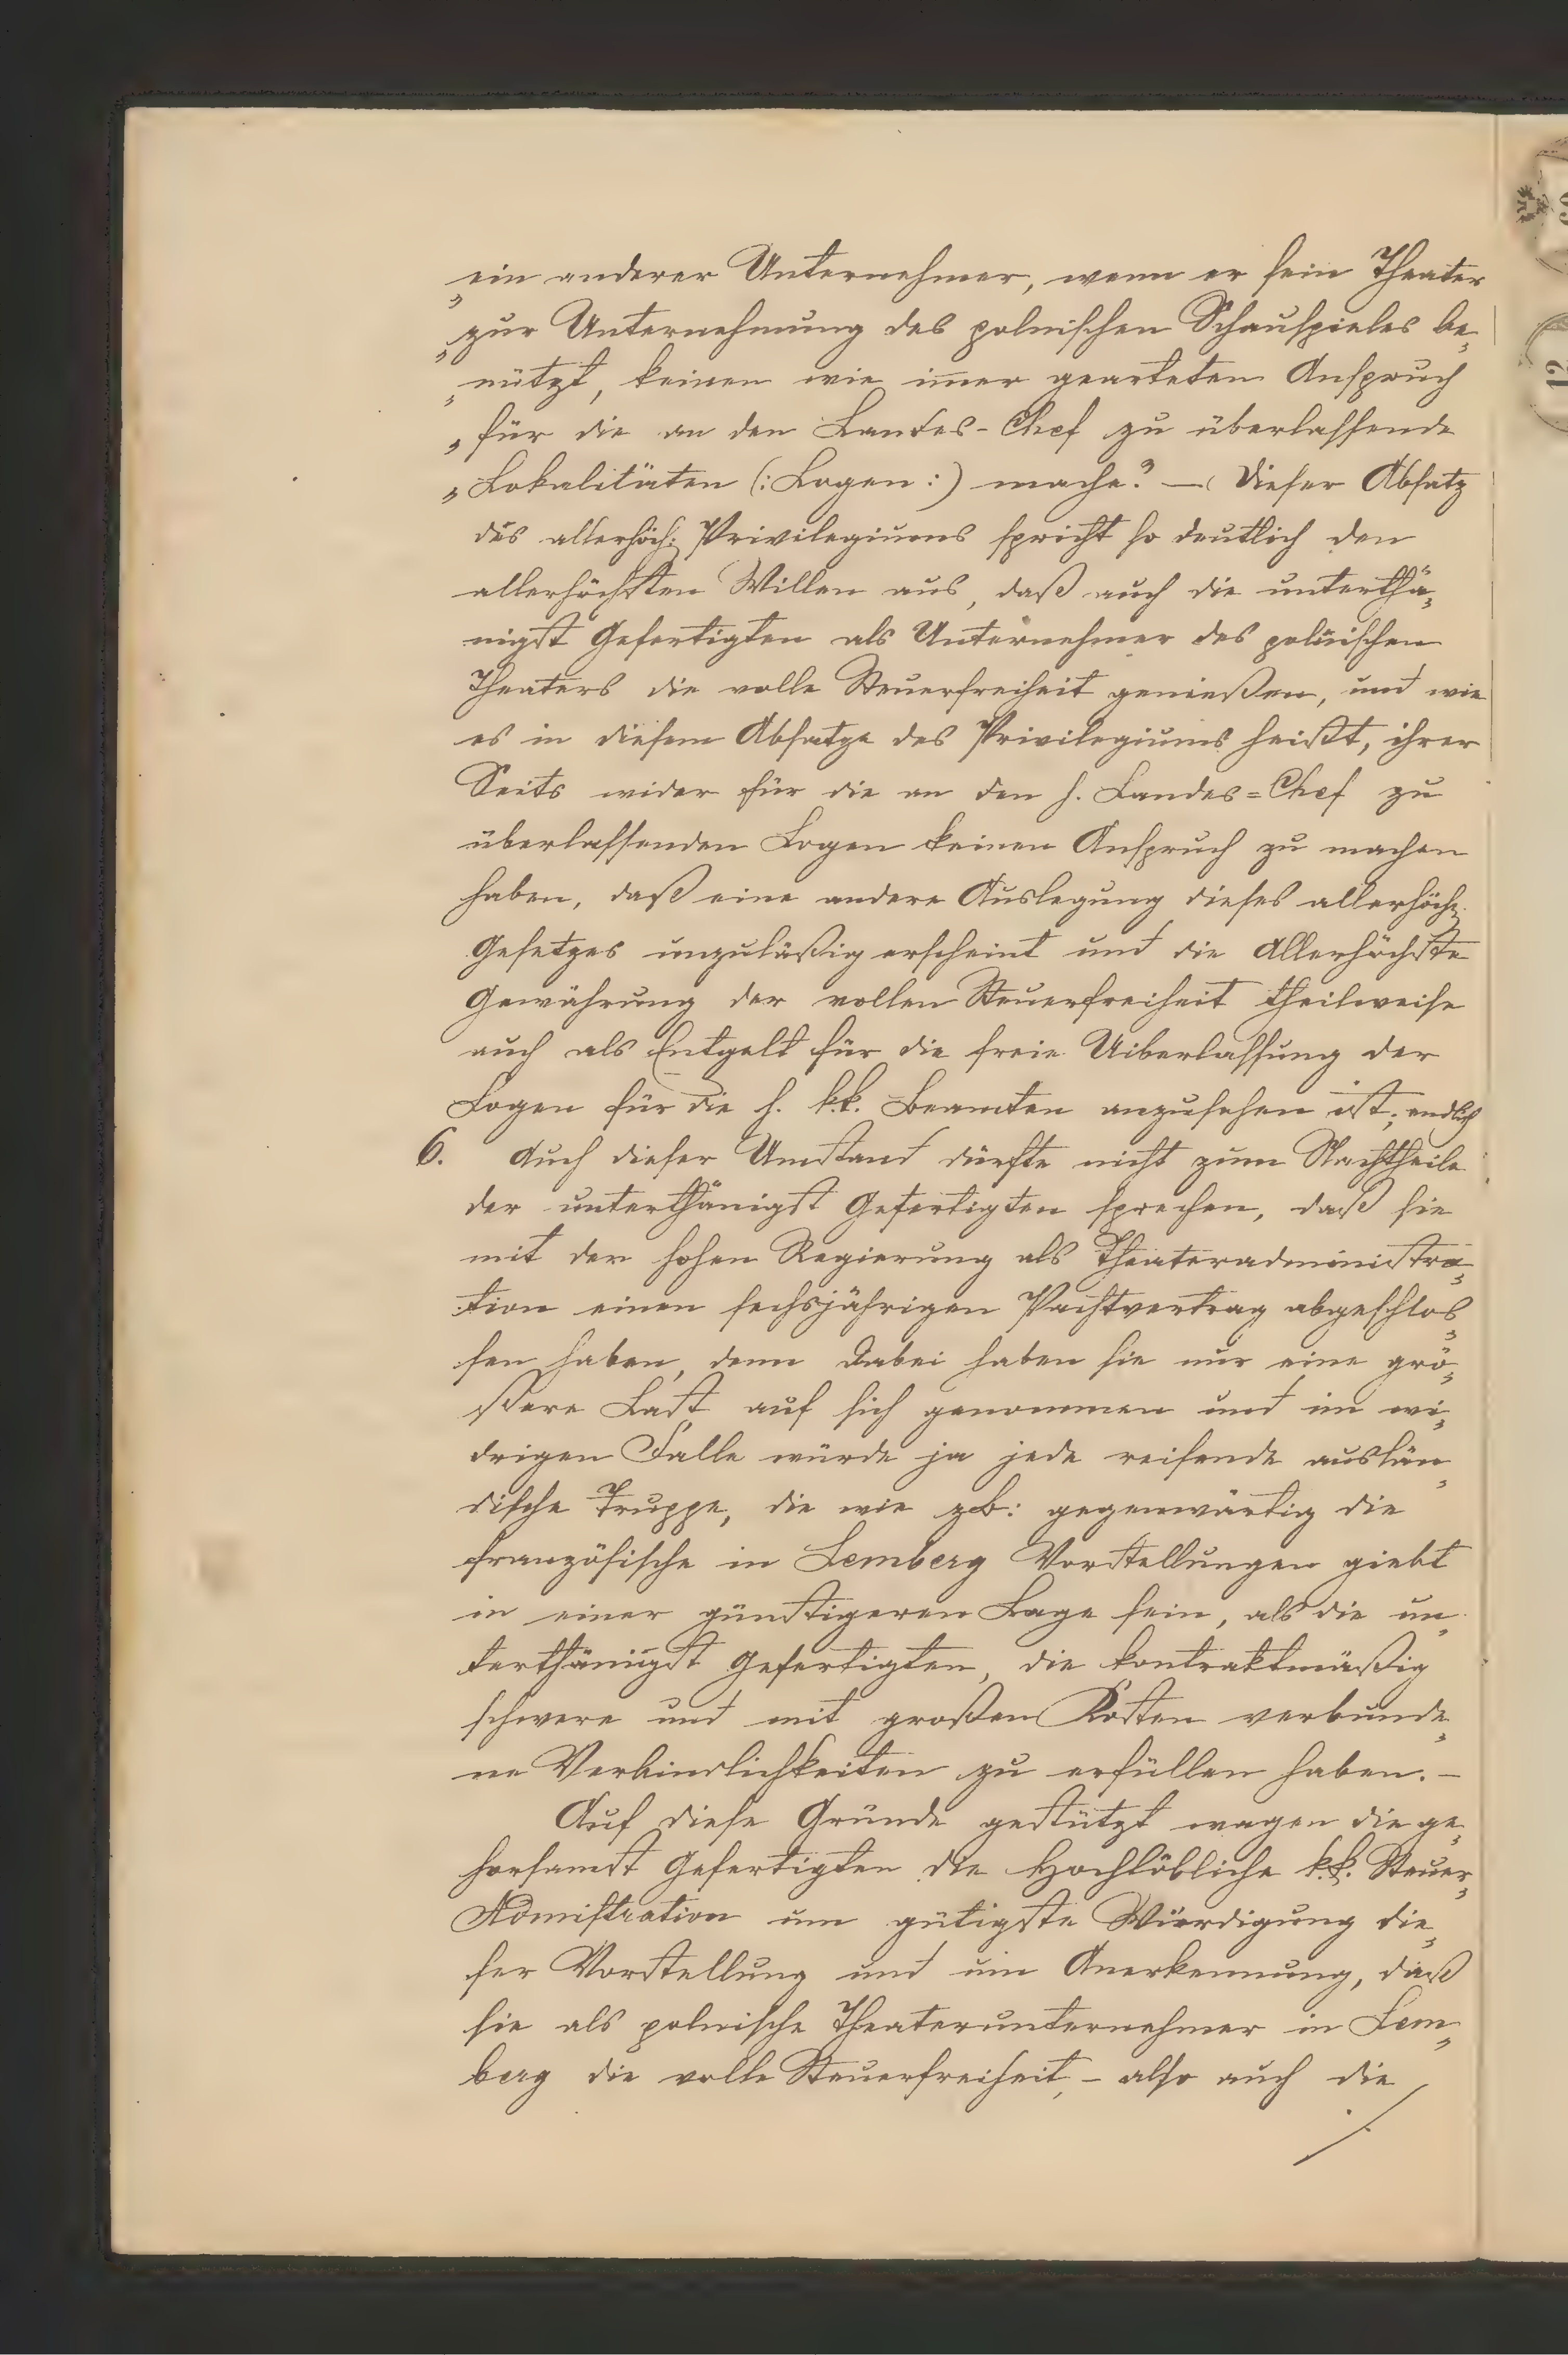 „ein anderer Unternehmer, wenn er sein Theater
„zur Unternehmung des polnischen Schauspieles be„
„nützt, keinen wie im̄er gearteten Anspruch
„für die an den Landes-Chef zu überlassende
„Lokalitäten (:Logen:) mache." — Dieser Absatz
des allerhöch: Privilegiums spricht so deutlich den
allerhöchsten Willen aus, daß auch die unterthä„
nigst Gefertigten als Unternehmer des polnischen
Theaters die volle Steuerfreiheit genießen, und wie
es in diesem Absatze des Privilegiums heißt, ihrer
Seits wider für die an den h. Landes=Chef zu
überlassenden Logen keinen Anspruch zu machen
haben, daß eine andere Auslegung dieses allerhöch:
Gesetzes unzuläßig erscheint und die Allerhöchste
Gewährung der vollen Steuerfreiheit theilweise
auch als Entgelt für die freie Uiberlassung der
Logen für die h. k.k. Beamten anzusehen ist; endlich
6. Auch dieser Umstand dürfte nicht zum Nachtheile
der unterthänigst Gefertigten sprechen, daß sie
mit der hohen Regierung als Theateradministra„
tion einen sechsjährigen Pachtvertrag abgeschlos„
sen haben, denn dabei haben sie nur eine grö„
ßere Last auf sich genommen und im wi„
drigen Falle würde ja jede reisende auslän„
dische Truppe, die wie zb: gegenwärtig die
französische in Lemberg Vorstellungen giebt
in einer günstigeren Lage sein, als die un„
terthänigst Gefertigten, die kontraktmäßig
schwere und mit großen Kosten verbunde„
ne Verbindlichkeiten zu erfüllen haben. –
Auf diese Gründe gestützt wagen die ge„
horsamst Gefertigten die Hochlöbliche k.k. Steuer„
Admistration um gütigste Würdigung die„
ser Vorstellung und um Anerkennung, daß
sie als polnische Theaterunternehmer in Lem„
berg die volle Steuerfreiheit, – also auch die